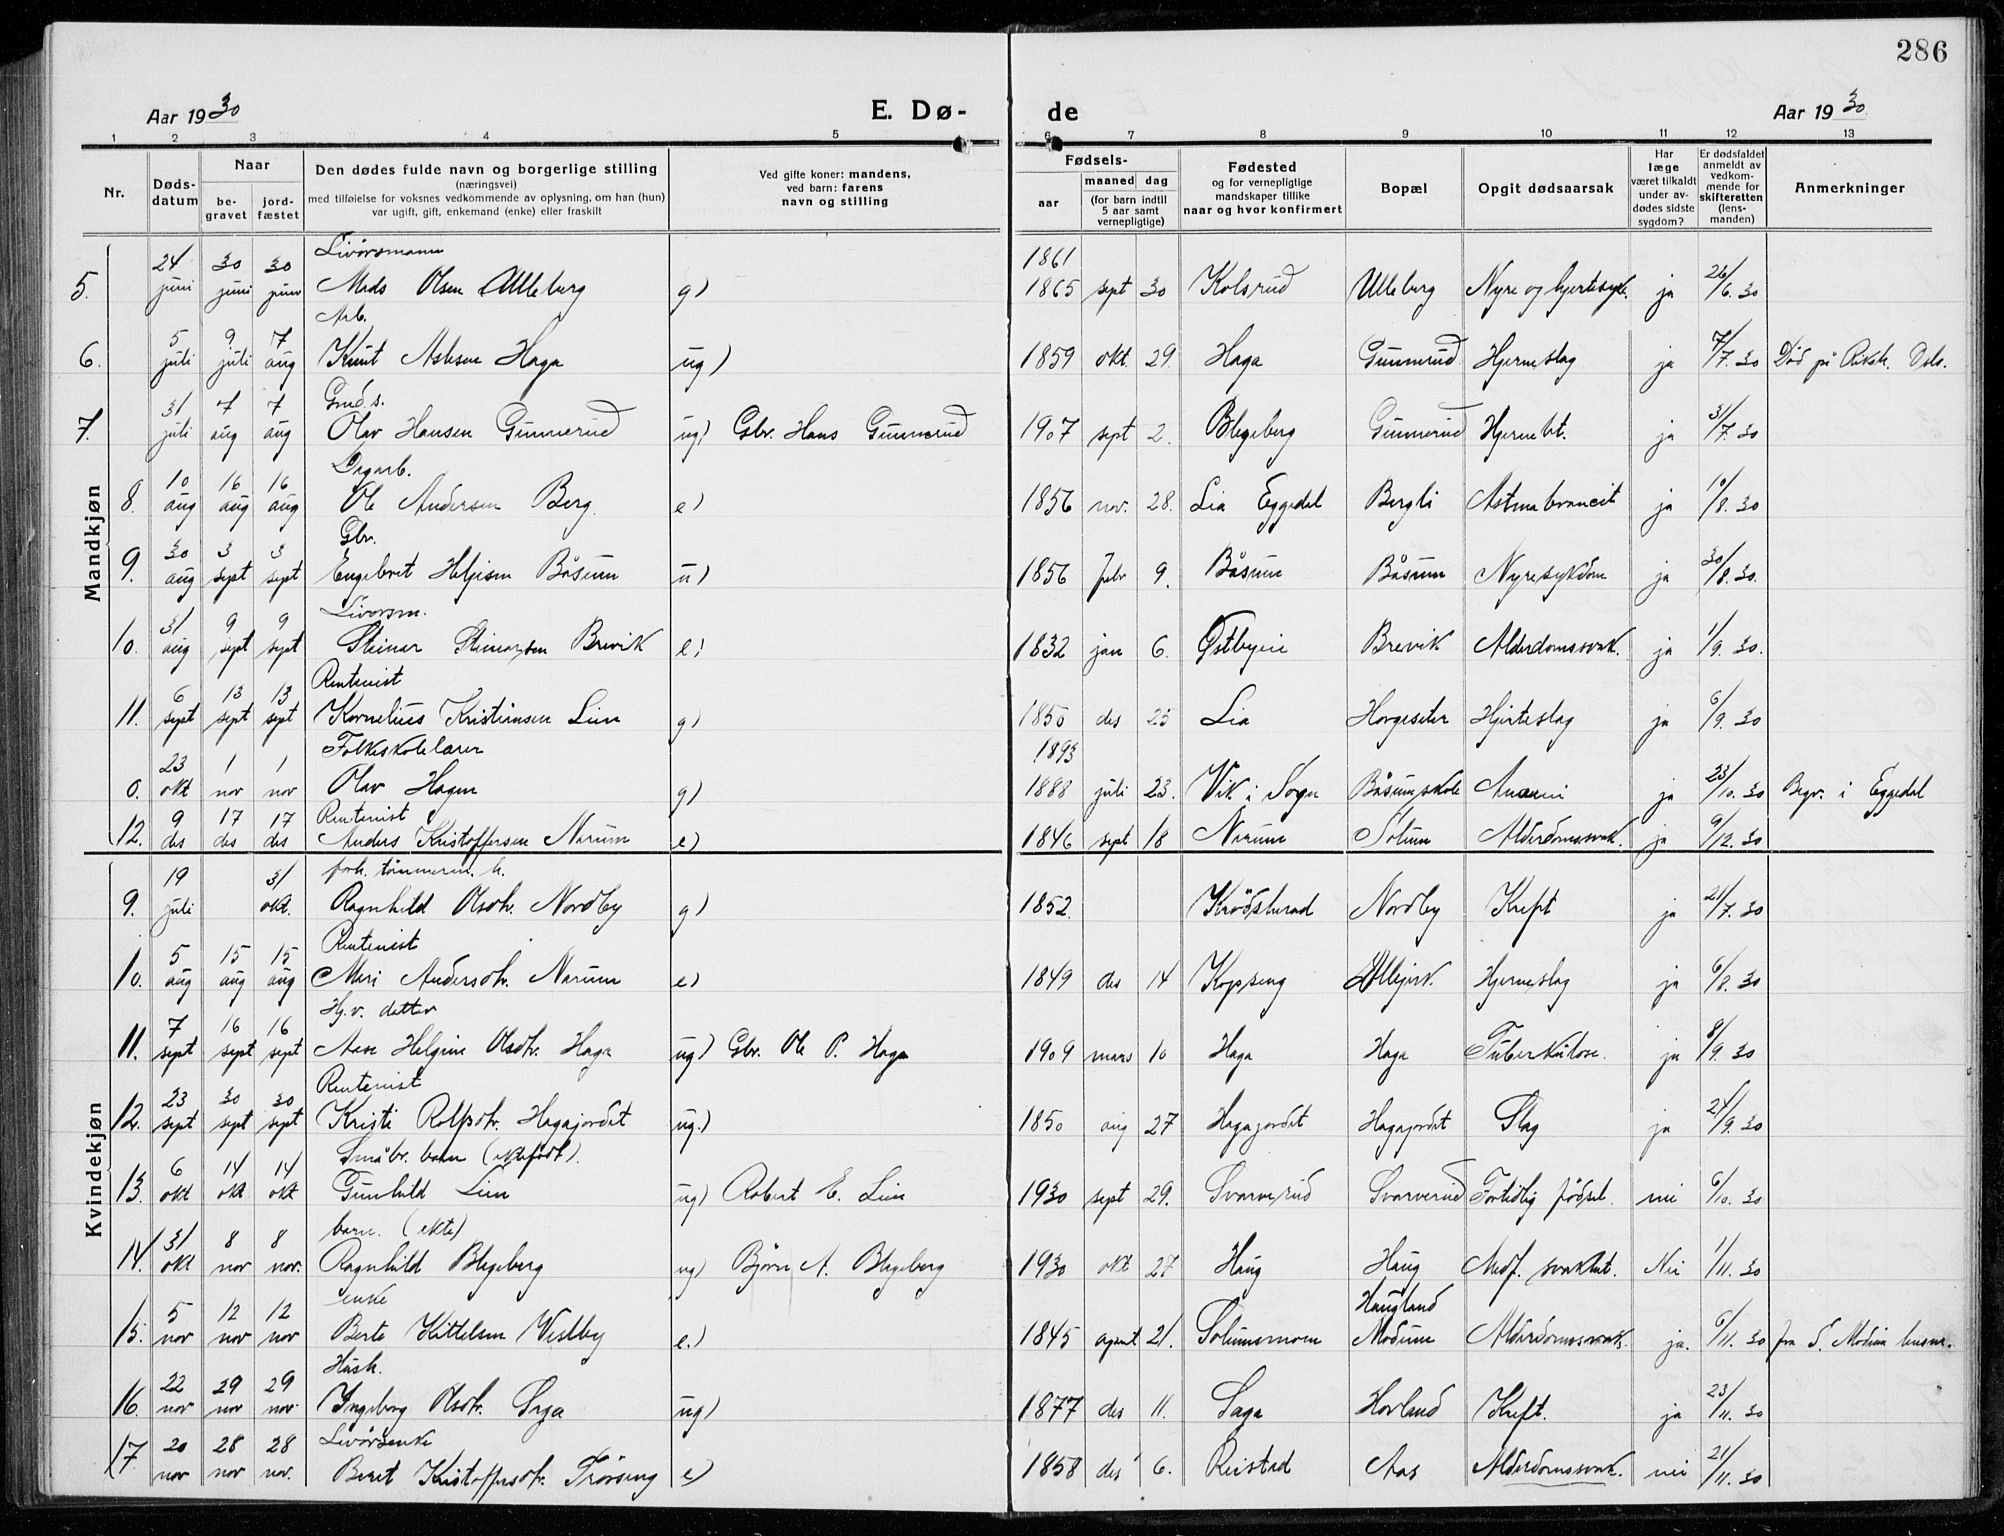 286
Aar 1930 E. Dø- de Aar 1930
1 2 3 4 5 6 7 8 9 10 11 12 13
Nr. Døds-datum Naar be-gravet jord-fæstet Den dødes fulde navn og borgerlige stilling (næringsvei) med tilføielse for voksnes vedkommende av oplysning, om han (hun) var ugift, gift, enkemand (enke) eller fraskilt Ved gifte koner: mandens, ved barn: farens navn og stilling Fødsels- aar maaned dag (for barn indtil 5 aar samt vernepligtige) Fødested og for vernepligtige mandskaper tillike naar og hvor konfirmert Bopæl Opgit dødsaarsak Har læge været tilkaldt under av-dødes sidste sygdom? Er dødsfaldet anmeldt av vedkom-mende for skifteretten (lens-manden) Anmerkninger
Mandkjøn
Livørsmann 1861
5. 24 juni 30 juni 30 juni Mads Olsen Ulleberg g) 1865 sept 30 Kolsrud Ulleberg Nyre og hjertesyk. ja 26/6. 30
Arb.
6. 5 juli 9 juli 7 aug Knut Aslesen Haga ug) 1859 okt. 29. Haga Gunnerud Hjerneslag ja 7/7. 30 Død på Riksh. Oslo.
Grud. s.
7. 31 juli 7 aug 7 aug Olav Hansen Gunnerud ug) Gbr. Hans Gunnerud 1907 sept 2. Blegeberg Gunnerud Hjernebt. ja 31/7. 30
Dagarb.
8. 10 aug 16 aug 16 aug Ole Andersen Berg. e) 1856 nov. 28. Lia Eggedal Bergli Astma broncit ja 10/8. 30
Gbr.
9. 30 aug 3 sept 3 sept Engebret Helgesen Båsum u) 1856 febr 9. Båsum Båsum Nyresykdom ja 30/8. 30.
Livørsm.
10. 31 aug 9 sept 9 sept Steinar Steinarsen Brevik e) 1832 jan 6. Østbyeie Brevik Alderdomssvak. ja 1/9. 30.
Rentenist
11. 6 sept 13 sept 13 sept Kornelius Kristiansen Lien g) 1850 des 25 Lia Horgeseter Hjerteslag ja 6/9. 30
Folkeskolelærer 1893
0. 23 okt 1 nov 1 nov Olav Hagen g) 1888 juli 23. Vik i Sogn Båsum skole Anæmi ja 23/10. 30 Begr. i Eggedal
Rentenist
12. 9 des 17 des 17 des Anders Kristoffersen Narum e) 1846 sept 18 Narum Solum Alderdomssvak. ja 9/12. 30
Kvindekjøn
forh. tømmerm. h.
9. 19 juli 31 okt. Ragnhild Olsdtr. Nordby g) 1852. Krødsherad Nordby Kreft ja 21/7. 30
Rentenist
10. 5 aug 15 aug 15 aug Mari Andersdtr. Narum e) 1849 des 14 Kopseng Hjerneslag ja 6/8. 30
Hj.v. datter
11. 7 sept 16 sept 16 sept Aase Helgine Olsdtr. Haga ug) Gbr. Ole P. Haga 1909 mars 10 Haga Haga Tuberkulose. ja 8/9. 30
Rentenist
12. 23 sept 30 sept 30 sept Kristi Rolfsdtr. Hagajordet ug.) 1850 aug 27 Hagajordet Hagajordet Slag ja 24/9. 30
Småbr. barn (ektefødt).
13. 6 okt 14 okt 14 okt Gunhild Lien ug) Robert E. Lien 1930 sept 29. Svarverud Svarverud Fortidlig fødsel. nei 6/10. 30
barn. (ekte)
14. 31 okt 8 nov 8 nov. Ragnhild Blegeberg ug) Bjørn A. Blegeberg 1930 okt 27 Haug Haug Medf. svakhet. Nei 1/11. 30
enke Haugland
15. 5 nov 12 nov 12 nov Berte Kittelsen Vestby e.) 1845 august 21. Solumsmoen Modum Alderdomssvak. ja. 6/11. 30 fra S. Modum
Hush.
16. 22 nov 29 nov 29 nov. Ingeborg Olsdtr. Saga ug) 1877 des 11. Saga Hovland Kreft. ja 23/11. 30
Livørsenke
17 20 nov 28 nov 28 nov. Beret Kristoffersdtr. Trøseng e) 1858 des 6. Reistad Aas Alderdomssvak. nei 21/11. 30